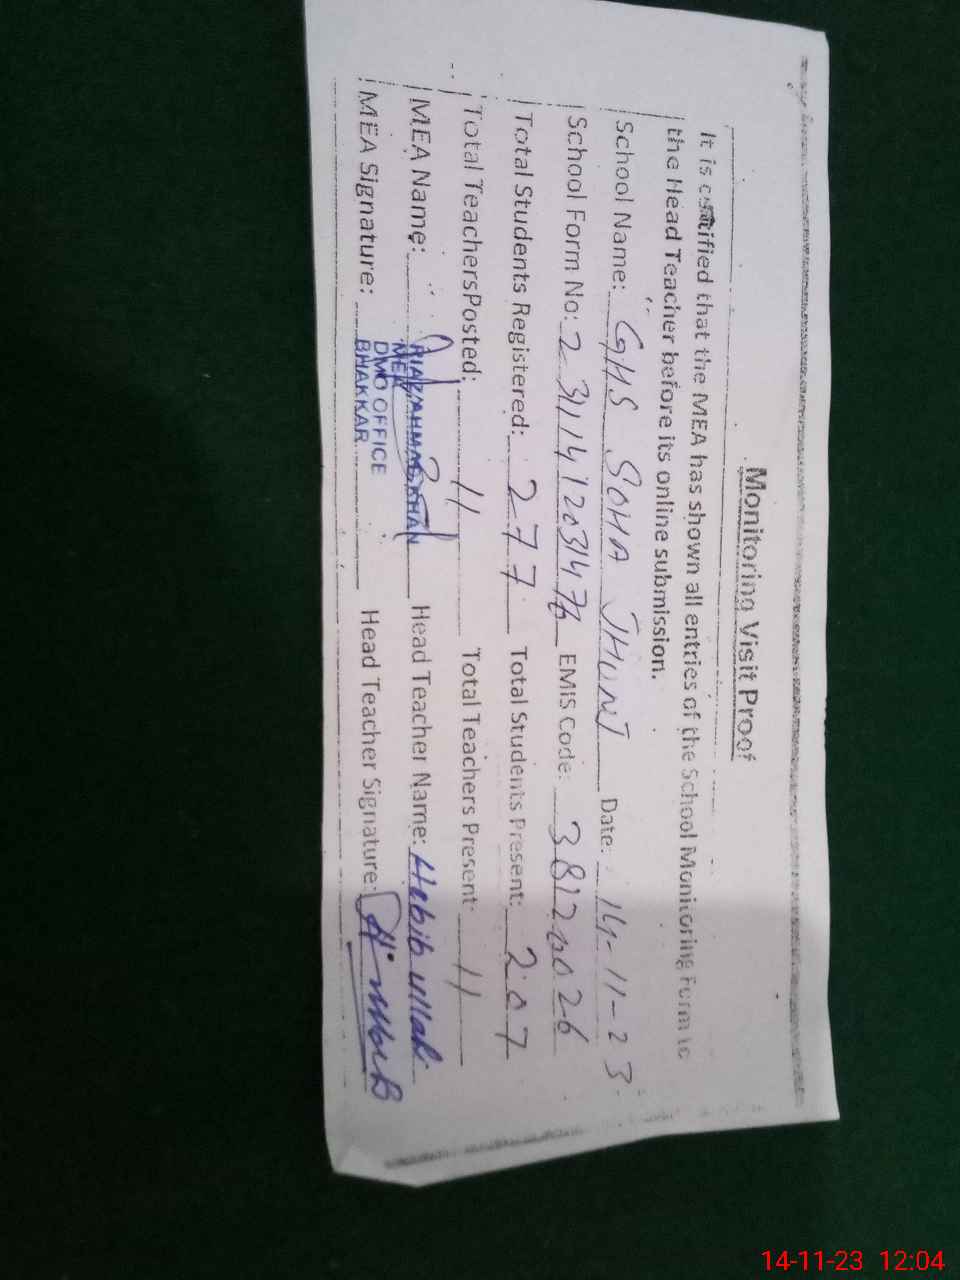 Monitoring Visit Proof
It is certified that the MEA has shown all entries of the School Monitoring Form to
the Head Teacher before its online submission.
School Name: GHS SOHA JHUNT Date: 14-11-23
School Form No: EMIS Code: 38120026
Total Students Registered: 277 Total Students Present: 207
Total Teachers Posted: 11 Total Teachers Present: 11
MEA Name: RIAZ AHMAD KHAN Head Teacher Name: Habib ullah
MEA
DMO OFFICE
BHAKKAR
MEA Signature: Head Teacher Signature:
14-11-23 12:04